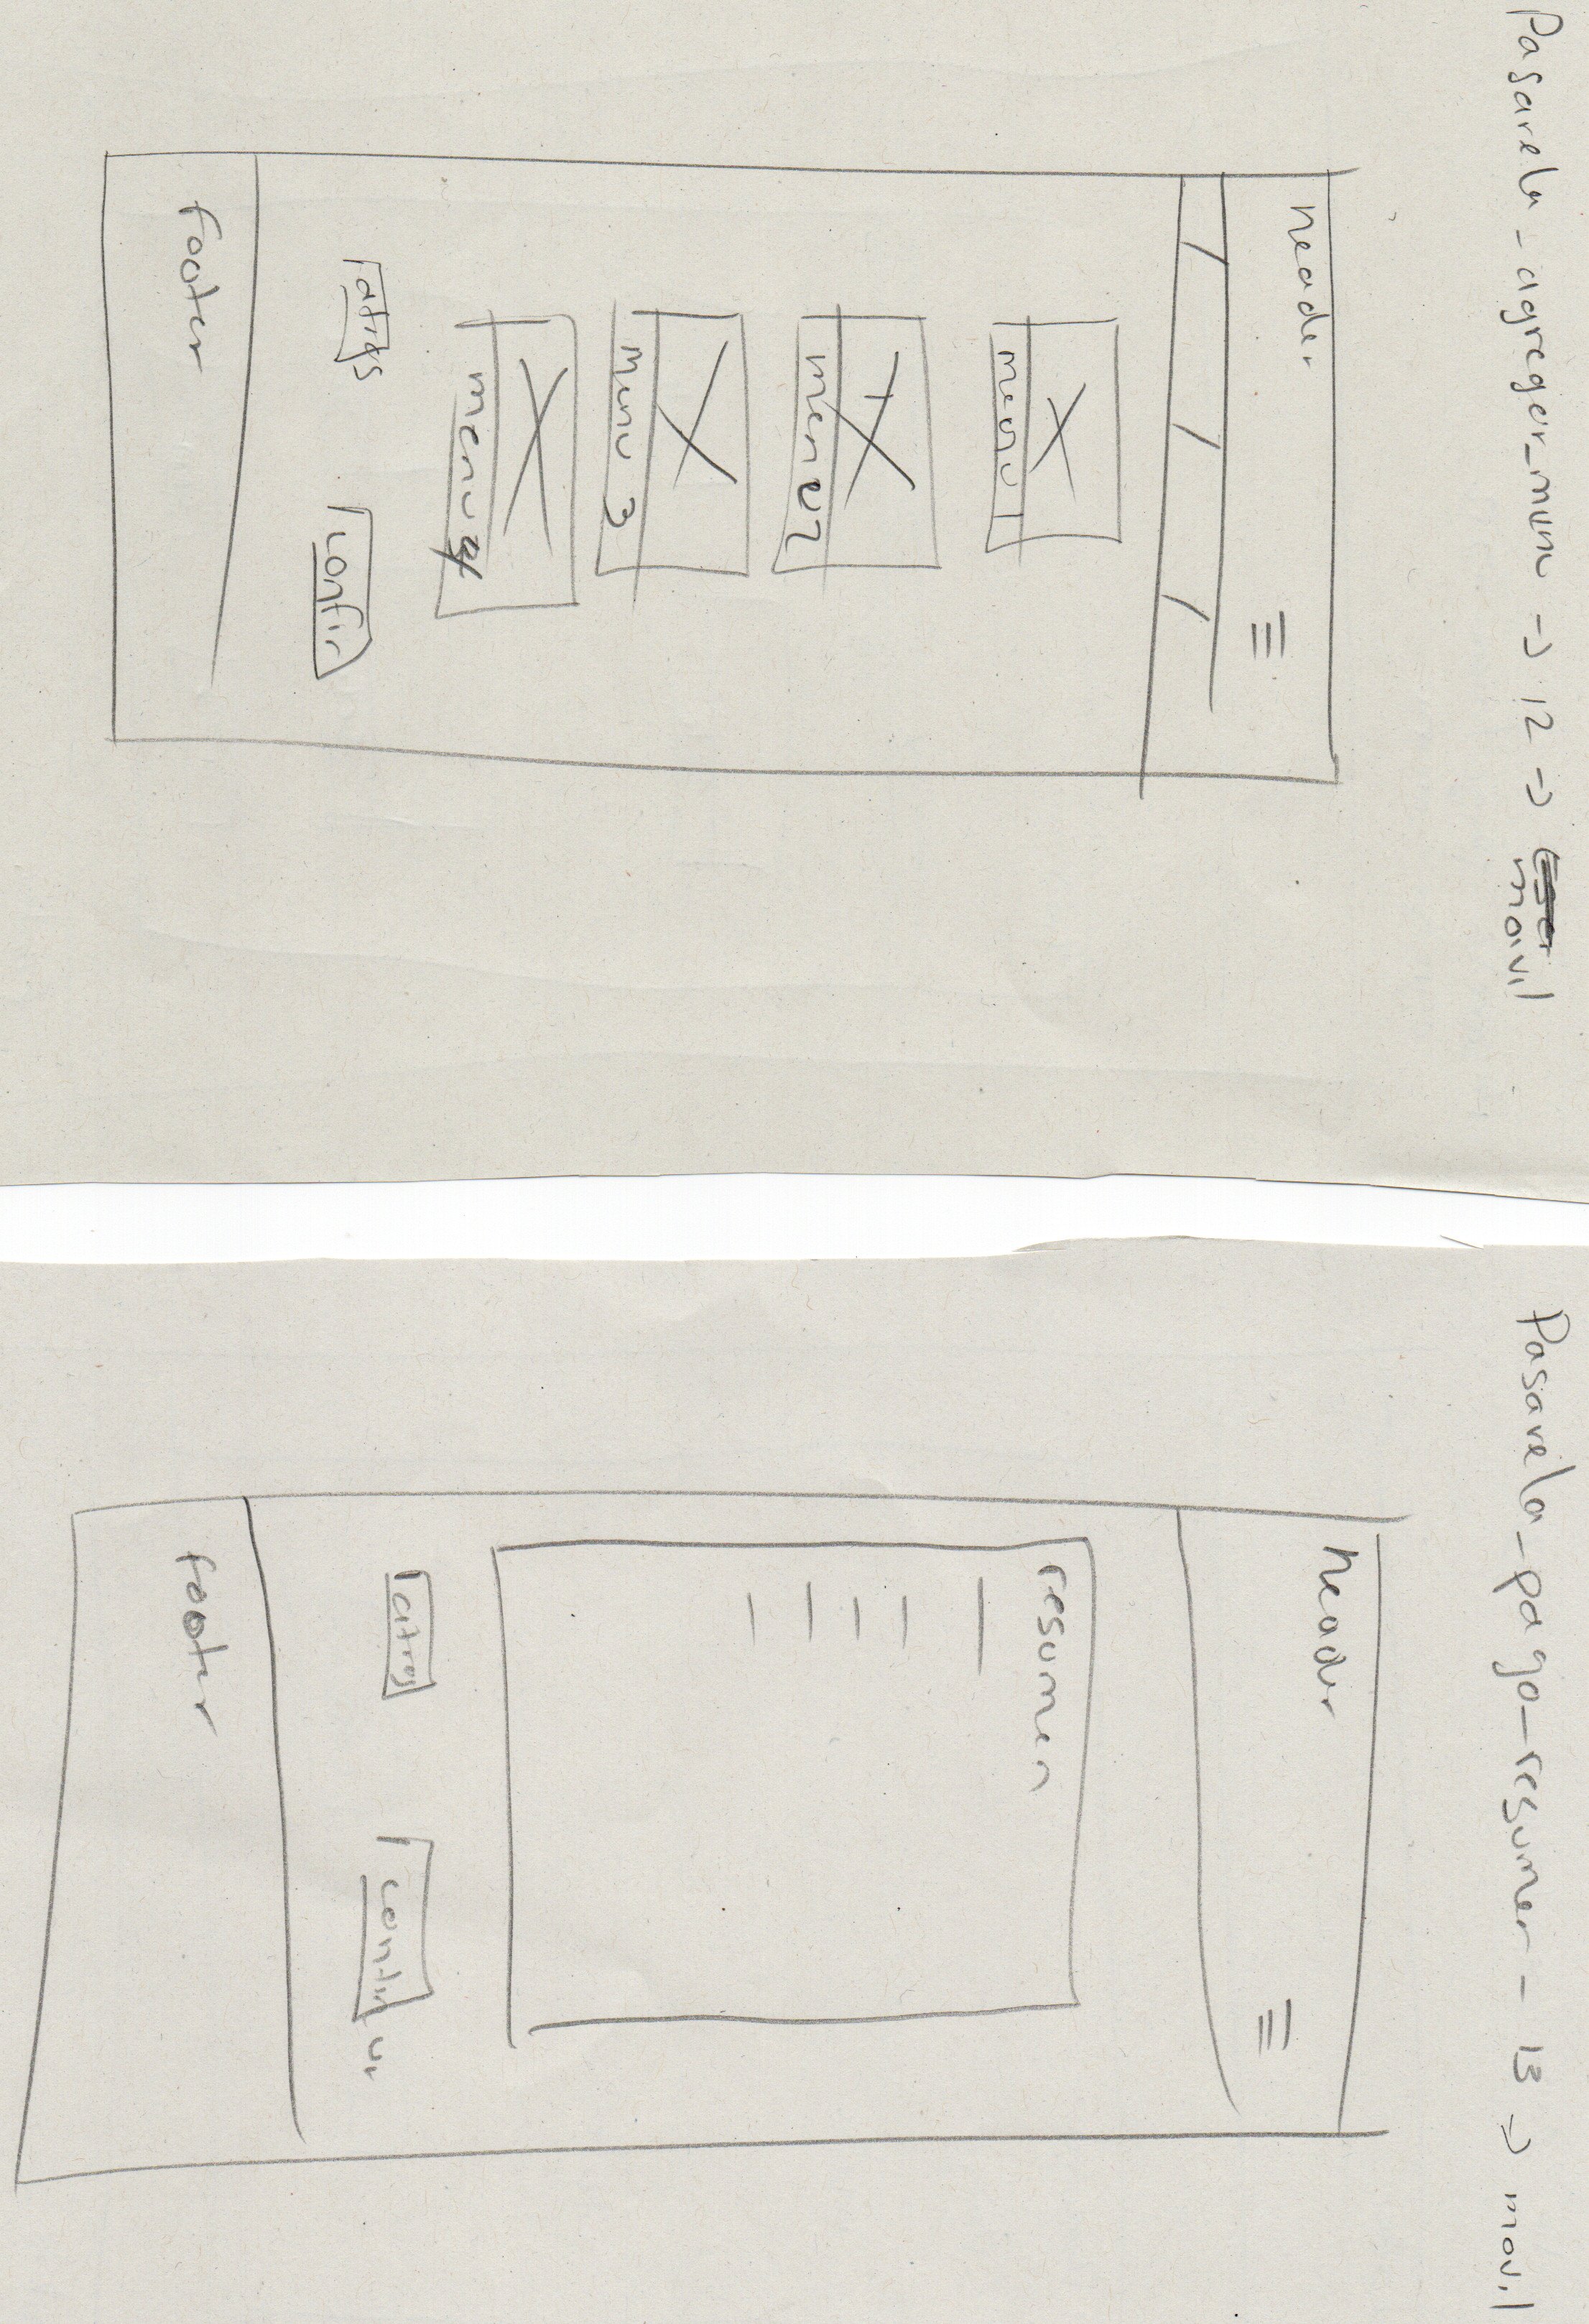 Pasarela_agregar_menu → 12 → movil
header
menu 1
menu 2
menu 3
menu 4
atras
confir
footer
Pasarela_pago_resumen - 13 → movil
header
resumen
atras
continuar
footer